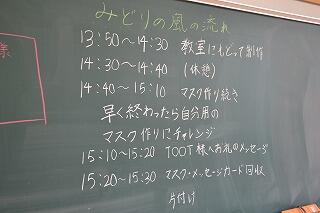 みどりの風の流れ
13:50〜14:30 教室にもどって制作
14:30〜14:40 (休憩)
14:40〜15:10 マスク作り続き
早く終わったら自分用の
マスク作りにチャレンジ
15:10〜15:20 TOOT様へお礼のメッセージ
15:20〜15:30 マスク・メッセージカード回収
片付け
様